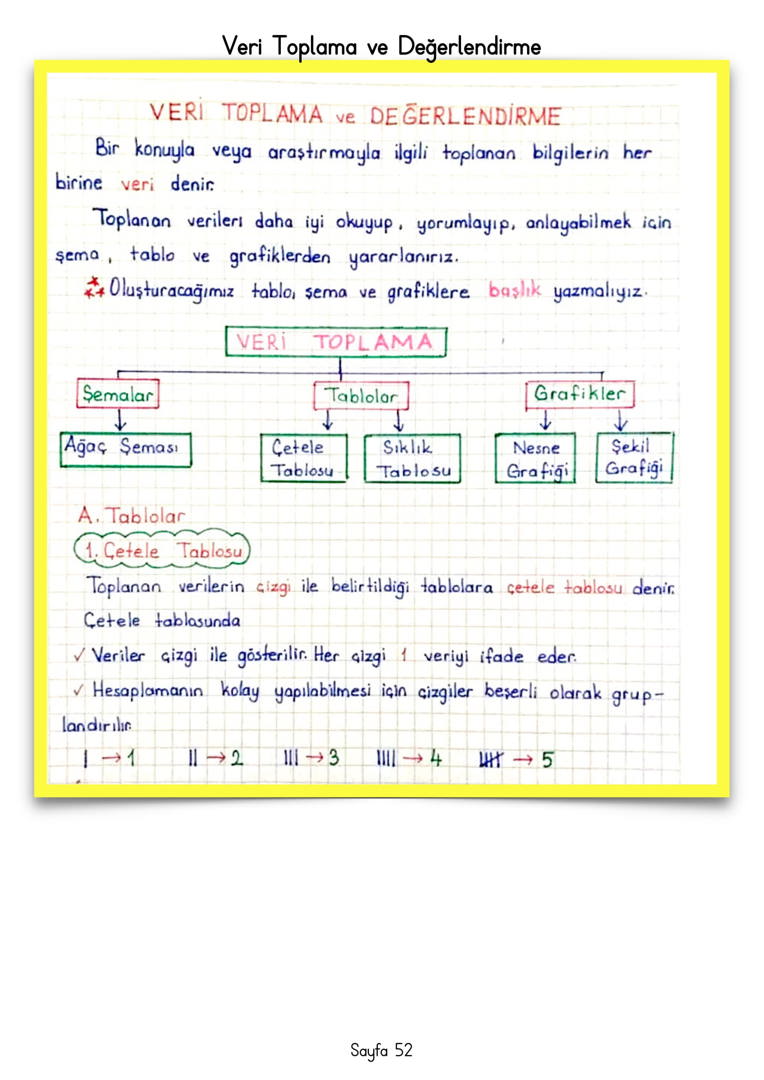 Veri Toplama ve Değerlendirme
VERİ TOPLAMA ve DEĞERLENDİRME
Bir konuyla veya araştırmayla ilgili toplanan bilgilerin her
birine veri denir.
Toplanan verileri daha iyi okuyup, yorumlayıp, anlayabilmek için
şema, tablo ve grafiklerden yararlanırız.
Oluşturacağımız tablo, şema ve grafiklere başlık yazmalıyız.
VERİ TOPLAMA
Şemalar Tablolar Grafikler
Ağaç Şeması
Çetele Tablosu
Sıklık Tablosu
Nesne Grafiği
Şekil Grafiği
A. Tablolar
1. Çetele Tablosu
Toplanan verilerin çizgi ile belirtildiği tablolara çetele tablosu denir.
Çetele tablosunda
✓ Veriler çizgi ile gösterilir. Her çizgi 1 veriyi ifade eder.
✓ Hesaplamanın kolay yapılabilmesi için çizgiler beşerli olarak grup-
landırılır.
| → 1 || → 2 ||| → 3 |||| → 4 𝍸 → 5
Sayfa 52